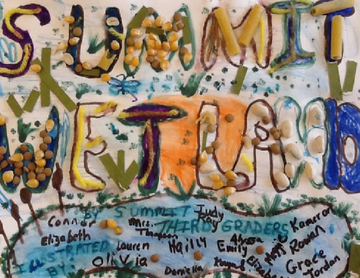 SUMMIT
WETLAND
BY SUMMIT
THIRD GRADERS
ILLUSTRATED
BY:
Connor
Elizabeth
Mrs.
Lauren
Olivia
Judy
Hailly
Daniella
Alyssa
Emily
Kamaron
Rowan
Grace
Jordan